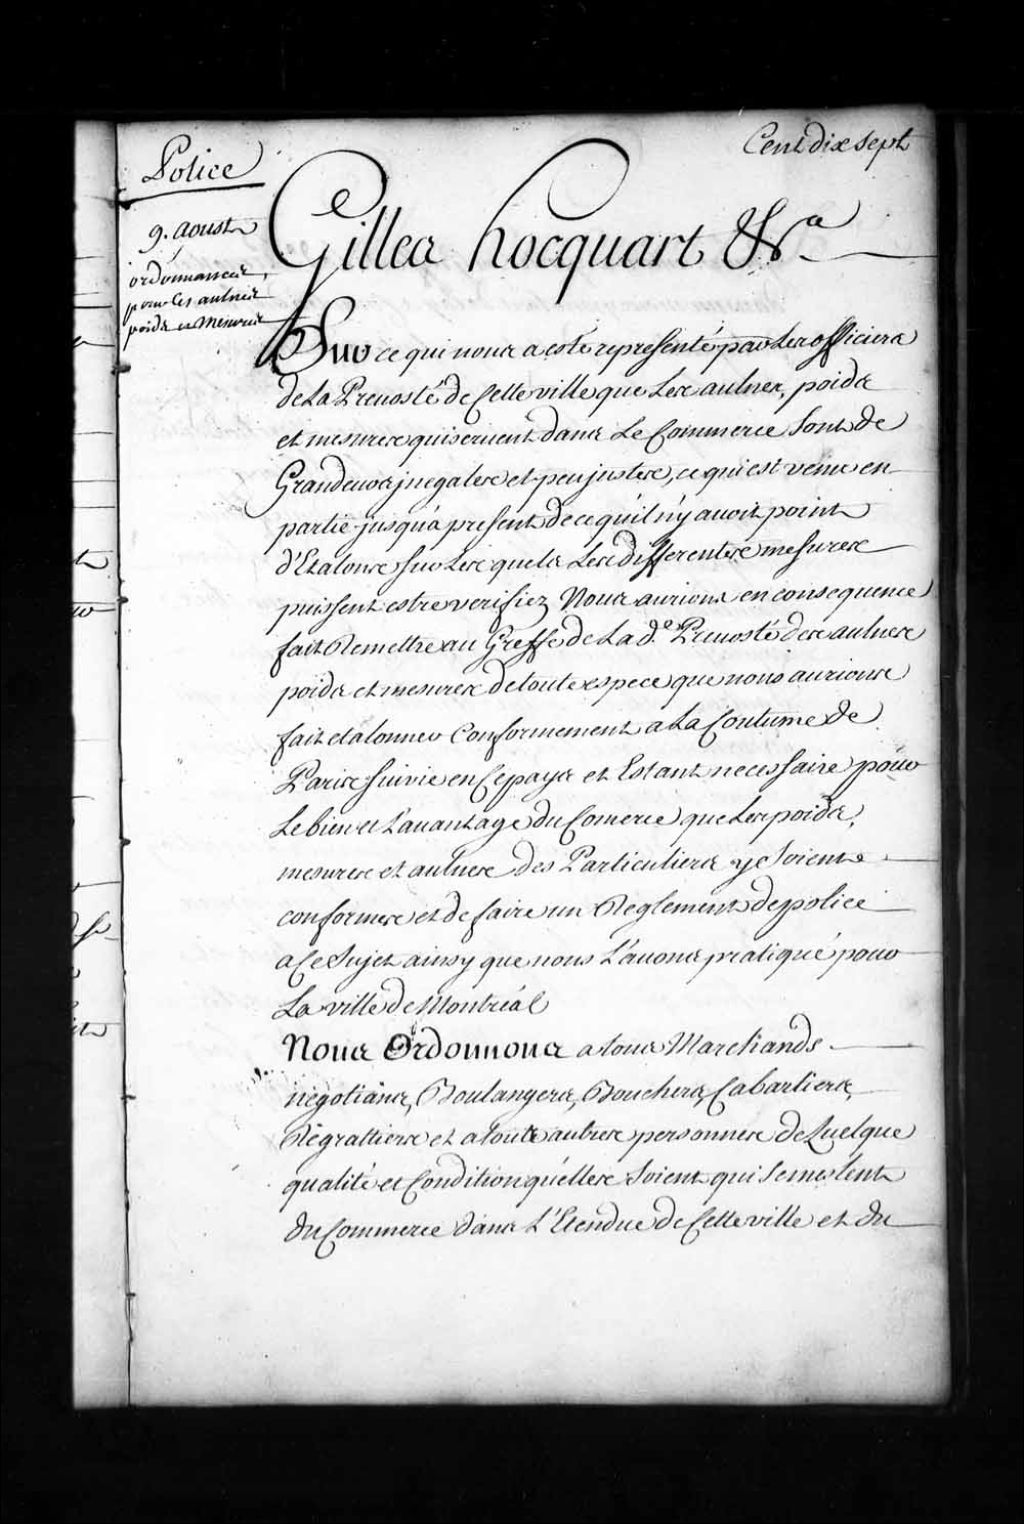 Cent dix sept
Police
9. Aoust
ordonnances
pour les aulnes
poids et Mesures
Gilles hocquart &ca
Sur ce qui nous a esté representé par Les officiers
de La Prevosté de Cette ville que Les aulnes, poids
et mesures qui servent dans Le Commerce Sont de
Grandeurs jnegales et peu justes, ce qui est venu en
partie jusqu'a present de ce qu'il n'y avoit point
d'Etalons sur Lesquels Les differentes mesures
puissent estre verifiez Nous aurions en consequence
fait Remettre au Greffe de La de. Prevosté des aulnes
poids et mesures de toute espece que nous aurions
fait etalonner Conformement a La Coutume de
Paris suivie en Ce pays et Estant necessaire pour
Le bien et L'avantage du Comerce que Les poids,
mesures et aulnes des Particuliers y Soient
conformes et de faire un Reglement de police
a Ce Sujet ainsy que nous L'avons pratiqué pour
La ville de Montréal
Nous Ordonnons a tous Marchands
négotians, Boulangers, Bouchers, Cabartiers,
Regrattiers et a toute autres personnes de Quelque
qualité et Condition qu'elles Soient qui Se meslent
du Commerce dans L'Etendue de Cette ville et du